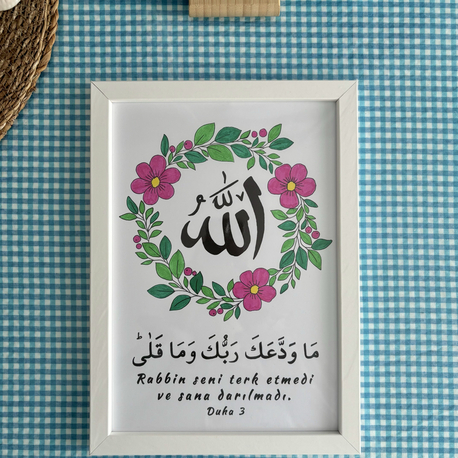 الله
مَا وَدَّعَكَ رَبُّكَ وَمَا قَلٰىۜ
Rabbin seni terk etmedi
ve sana darılmadı.
Duha 3